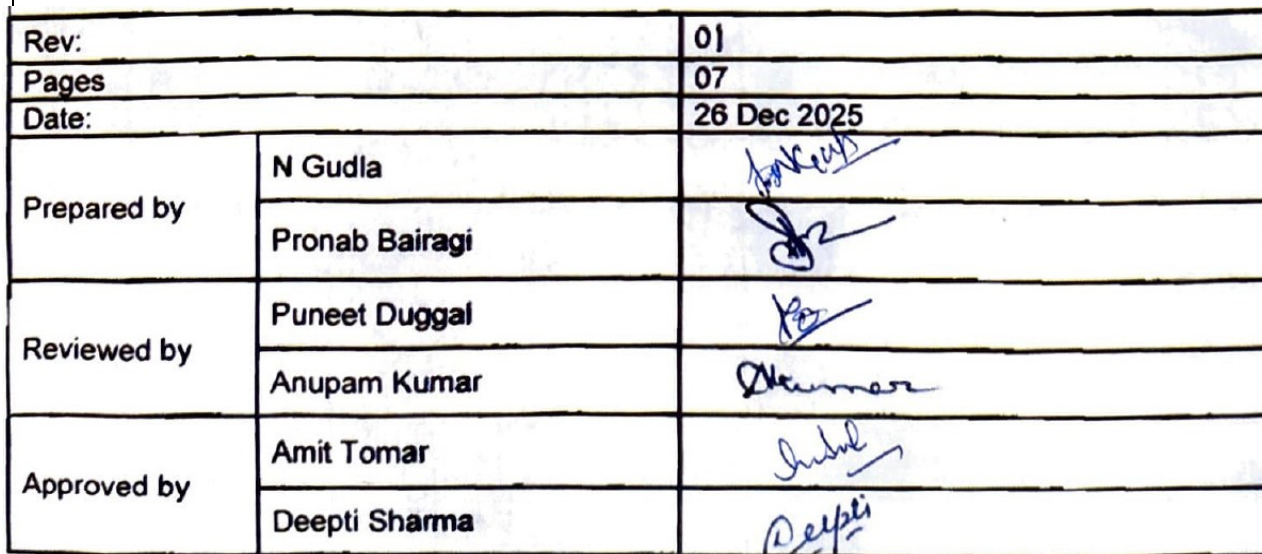 Rev: 01
Pages 07
Date: 26 Dec 2025
Prepared by
N Gudla
Pronab Bairagi
Reviewed by
Puneet Duggal
Anupam Kumar Akumar
Approved by
Amit Tomar
Deepti Sharma Deepti